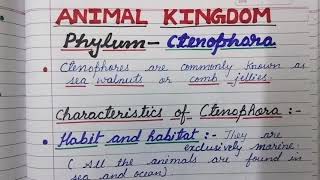 ANIMAL KINGDOM
Phylum- Ctenophora
Ctenophores are commonly known as
sea walnuts or comb jellies.
Characteristics of Ctenophora :-
Habit and habitat :- They are
exclusively marine.
( All the animals are found in
sea and ocean).